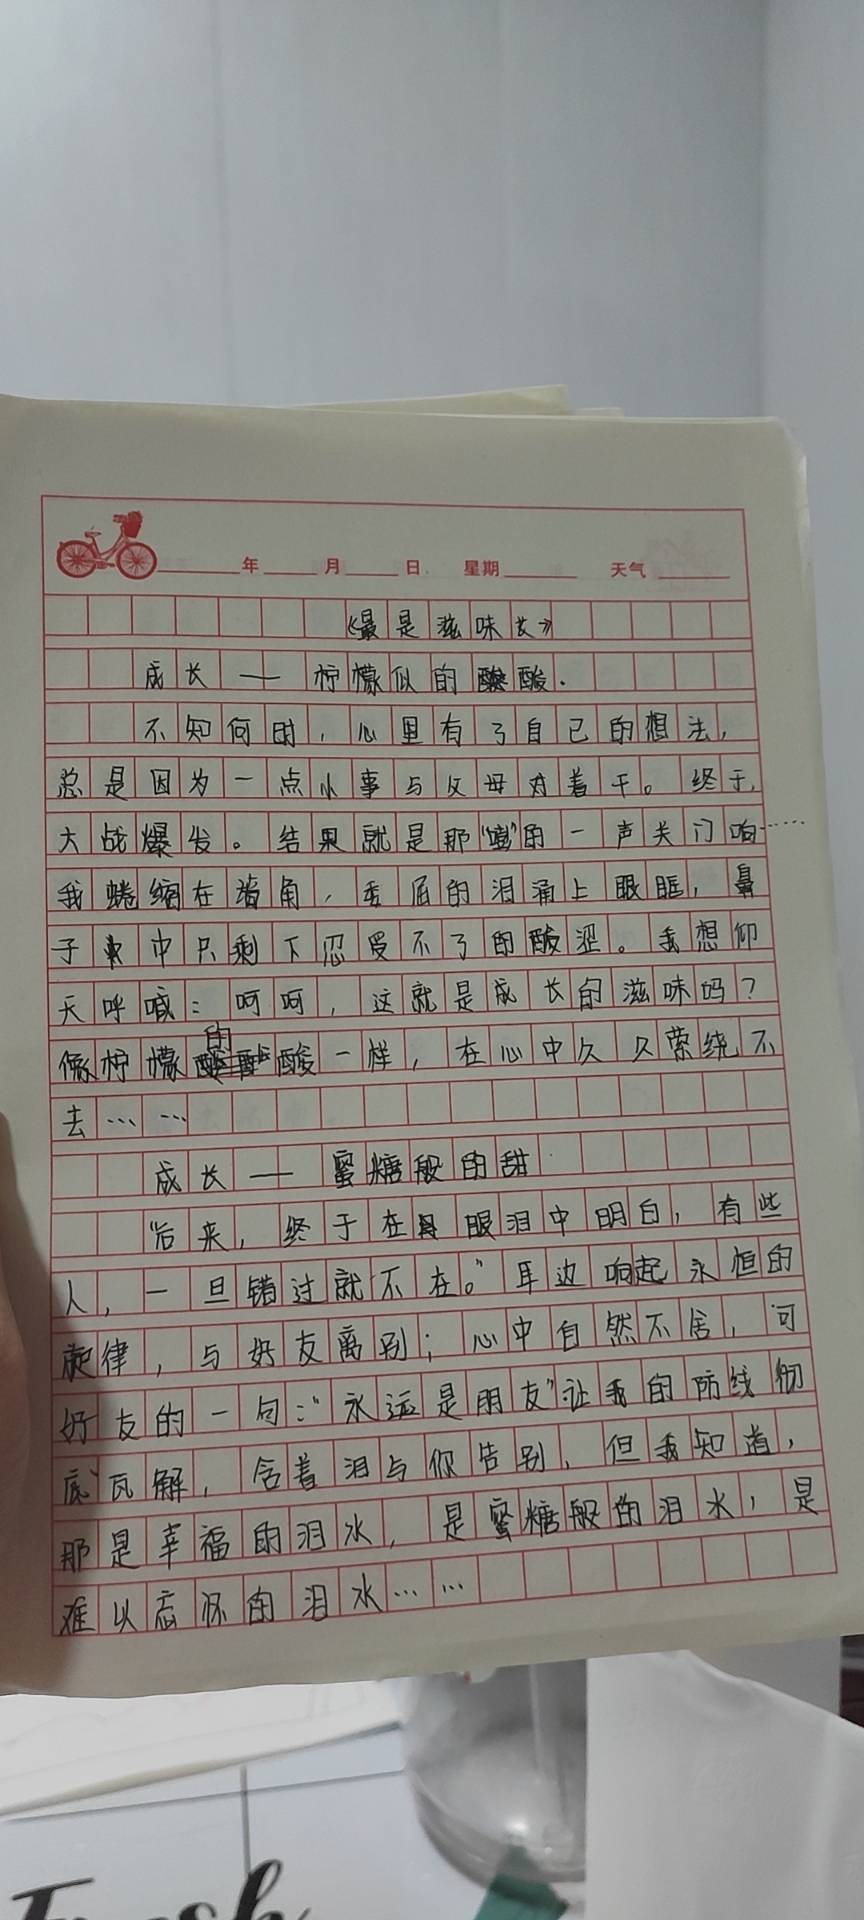 年 月 日 星期 天气
《最是滋味长》
成长——柠檬似的酸.
不知何时,心里有了自己的想法,
总是因为一点小事与父母对着干。终于,
大战爆发。结果就是那“嘭”的一声关门响……
我蜷缩在墙角,委屈的泪涌上眼眶,鼻
子中只剩下忍受不了的酸涩。我想仰
天呼喊:呵呵,这就是成长的滋味吗?
像柠檬的酸一样,在心中久久萦绕不
去……
成长——蜜糖般的甜
“后来,终于在眼泪中明白,有些
人,一旦错过就不在。”耳边响起永恒的
旋律,与好友离别;心中自然不舍,可
好友的一句:“永远是朋友”让我的防线彻
底瓦解,含着泪与你告别,但我知道,
那是幸福的泪水,是蜜糖般的泪水,是
难以忘怀的泪水……
Fresh